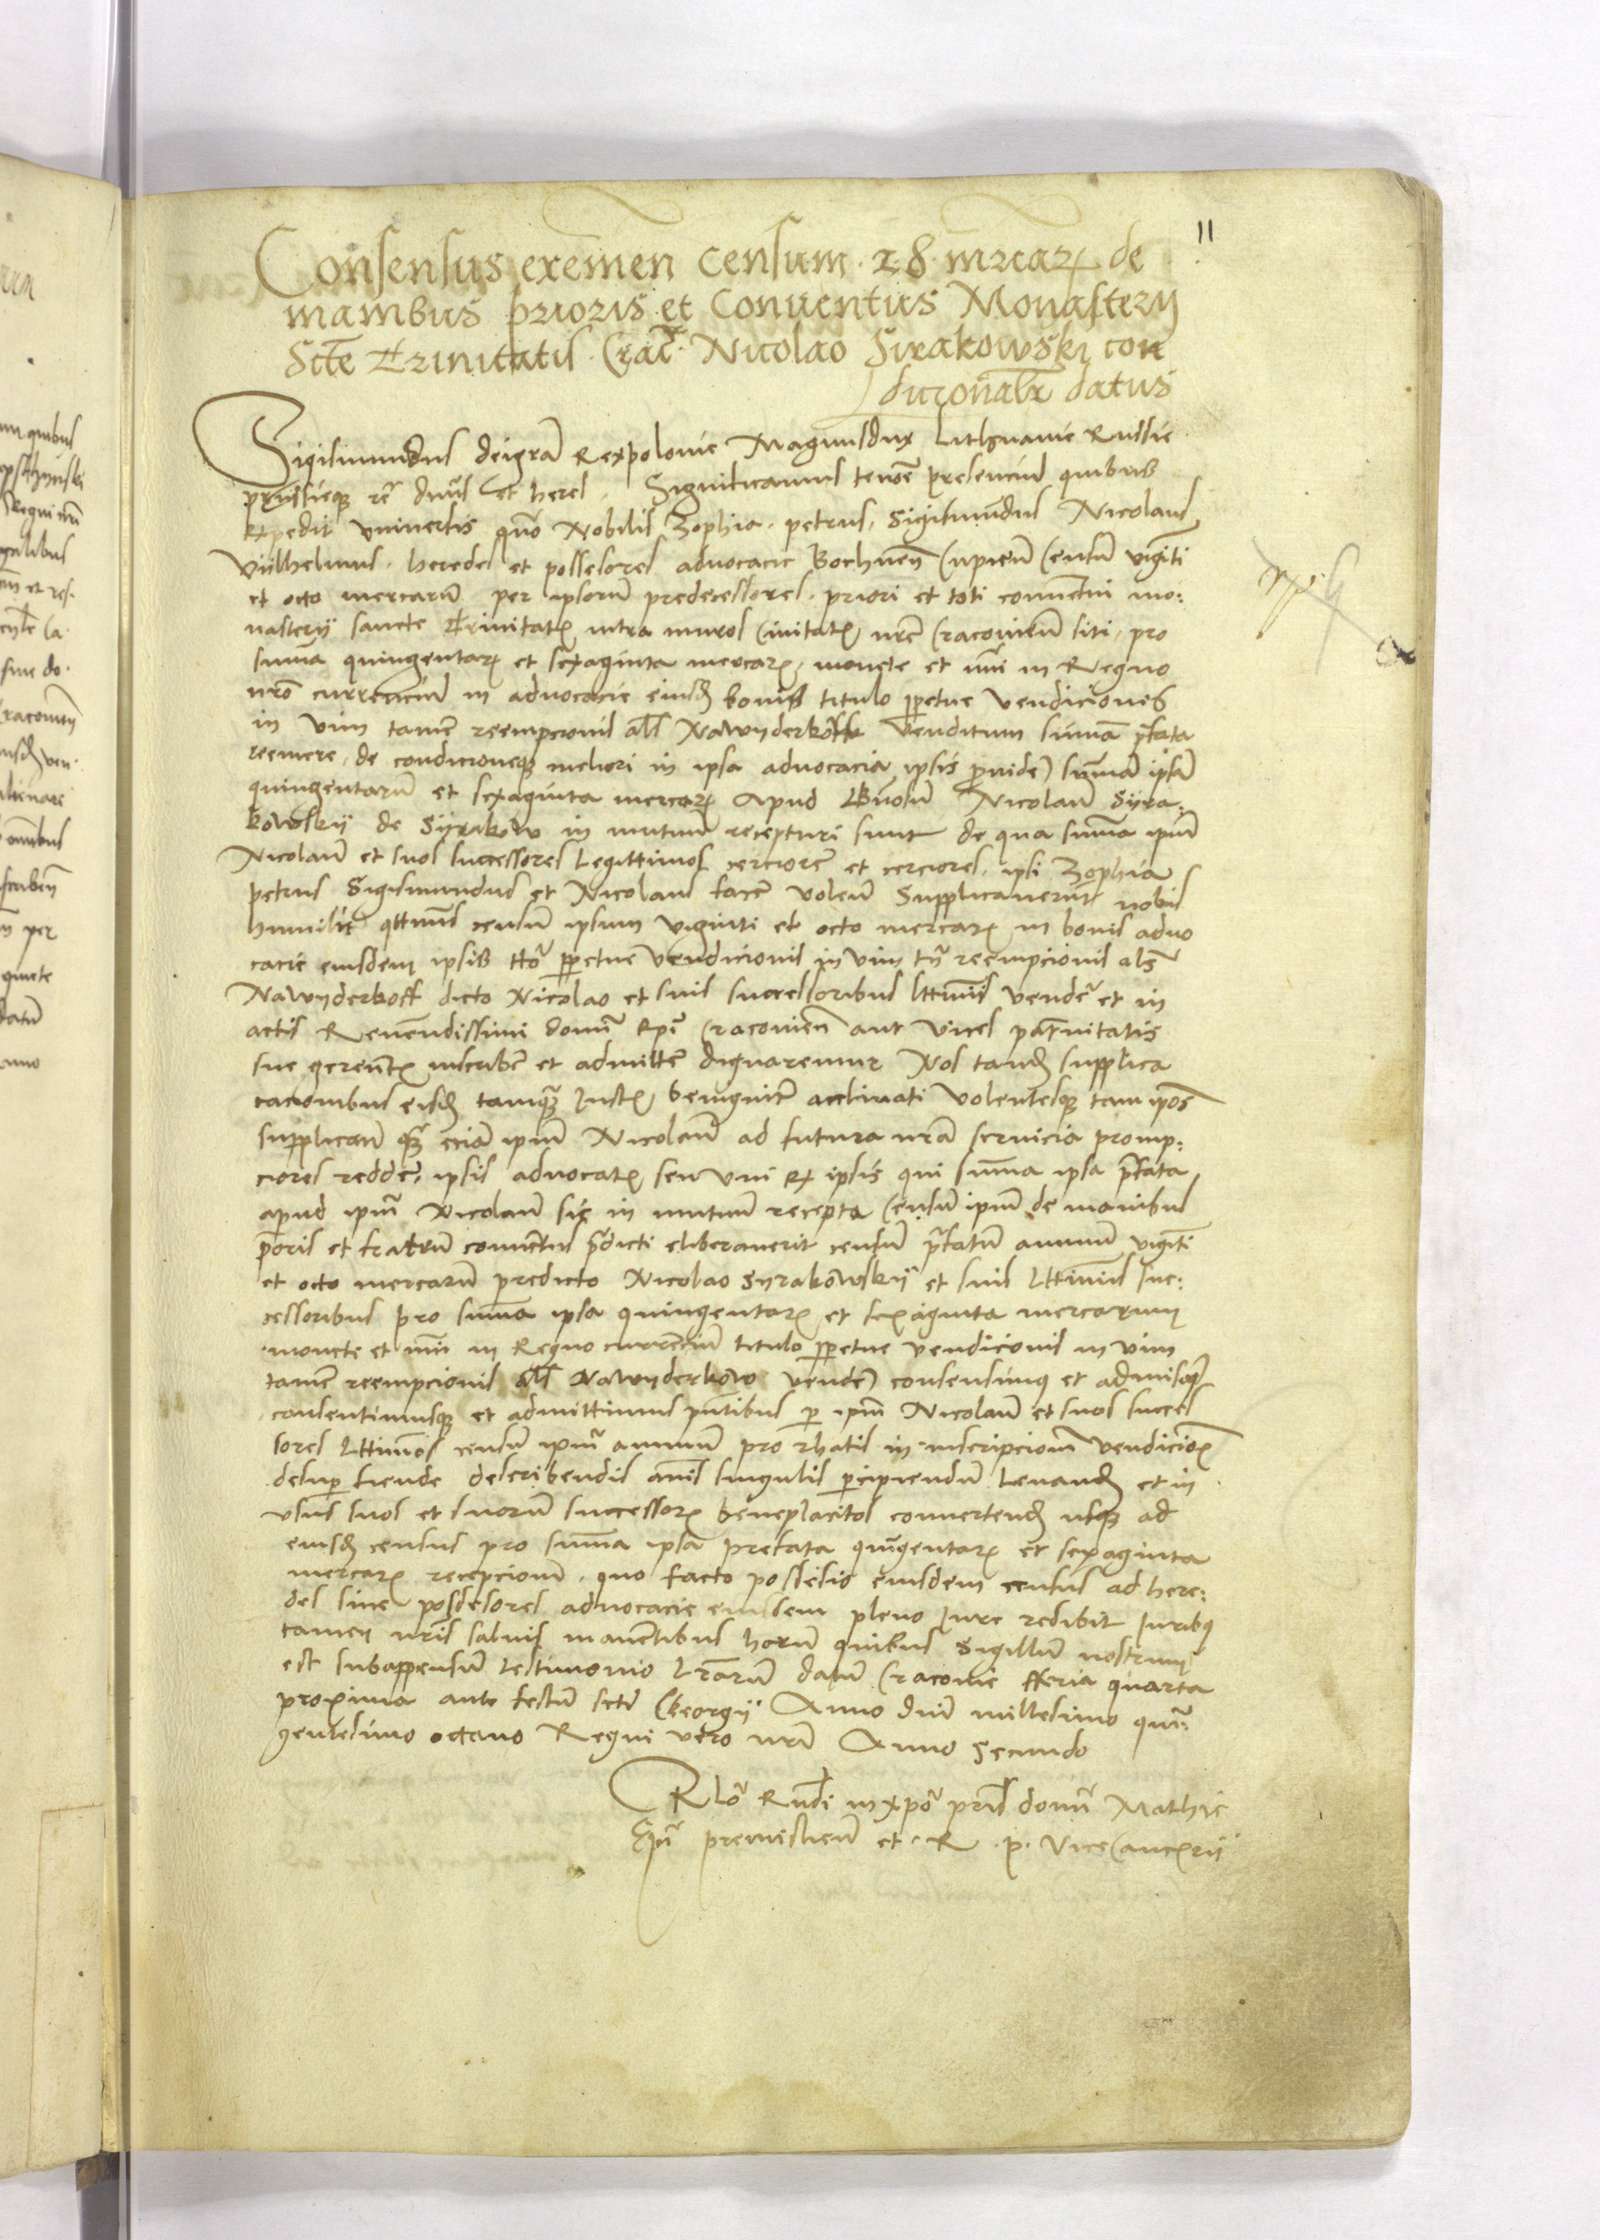 11
Consensus exemen censum · 28 · mrcarꝝ de
manibus prioris et Conventus Monasterij
Scte Trinitatis Crac Nicolao Sirakowski con
dicionalr datus
Sigismundus dei gra Rex polonie Magnusdux Lithuanie Russie
prussieqꝫ etc dnus et heres . Significamus tenore presencium quibus
expedit universis quō Nobilis Zophia · petrus · Sigismundus Nicolaus
Vilhelmus · heredes et possessores advocacie Bochnen Cupieñ Censum viginti
et octo mercarum per ipsorum predecessores · priori et toti conventui mo:
nasterij sancte Trinitatꝭ intra muros Civitatꝭ nre Cracovieñ siti · pro
summa quingentarꝝ et sexaginta mercarꝝ , monete et nūi in Regno
nrō currencium in advocacie eiusdꝫ bonis titulo ꝑpetue Vendiciones
in Vim tamen reempcionis als Nawyderkoff Venditum summa p̄fata
reemere , de condicioneqꝫ meliori in ipsa advocacia ipsis ꝓvidere summam ipsam
quingentarum et sexaginta mercarꝝ Apud Gñosum Nicolaum Syra-
kowsky de Syrakow in mutuum recepturi sunt de qua summa ipsum
Nicolaum et suos successores Legittimos cerciorem et cerciores ipsi Zophia
petrus Sigismundus et Nicolaus facere voleñ Supplicaverunt nobis
humilit̄ qttinus censum ipsum viginti et octo mercarꝝ in bonis advo
cacie eiusdem ipsis tito ꝑpetue Vendicionis in Vim tn̄ reempcionis als
Nawyderkoff dicto Nicolao et suis successoribus lttimis vendere et in
actis Reverendissimi domini Epi Cracovien aut Vices patnitatis
sue gerentꝭ inscribere et admittere dignaremur Nos tandꝫ supplica
cacionibus eisdꝫ tamquam Iustꝭ benignit̄ acclinati Volentesqꝫ tam ipsos
supplicantes quam eciam ipsum Nicolaum ad futura nrā servicia promp-
ciores reddere , ipsis advocatꝭ seu uni Ex ipsis qui summa ipsa p̄fata
apud ipsum Nicolaum sic in mutuum recepta Censum ipsum de manibus
p̄oris et fratrum conventus p̄dicti eliberaverit censum p̄fatum annuum viginti
et octo mercarum predicto Nicolao Syrakowsky et suis lttimis suc-
cessoribus pro summa ipsa quingentarꝝ et sexaginta mercarum
monete et nūi in Regno currencium titulo ꝑpetue vendicionis in vim
tamen reempcionis als Nawyderkow vendere consensimus et admisimus
consentimusqꝫ et admittimus pntibus per ipsum Nicolaum et suos succes
sores lttimos censum ipsum annuum pro rhatis in inscripcionem vendicionꝭ
desuper fiende describendis annis singulis percipiendum Levandꝫ et in
usus suos et suorum successorꝝ beneplacitos convertendꝫ usqꝫ ad
eiusdꝫ census pro summa ipsa prefata quingentarꝝ et sexaginta
mercarꝝ recepcionem · quo facto possessio eiusdem census ad here:
des sive possessores advocacie eiusdem pleno Iure redibit Iuribus
tamen nris salvis manentibus harum quibus Sigillum nostrum
est subappensum testimonio lrarum datum Cracovie fferia quarta
proxima ante festum scti Georgij Anno dni millesimo quin-
gentesimo octavo Regni vero nri Anno secundo
Rlō Rndi in xpo pris domi Mathie
Epi premislieñ et · R · p · Vicecancꝭrij